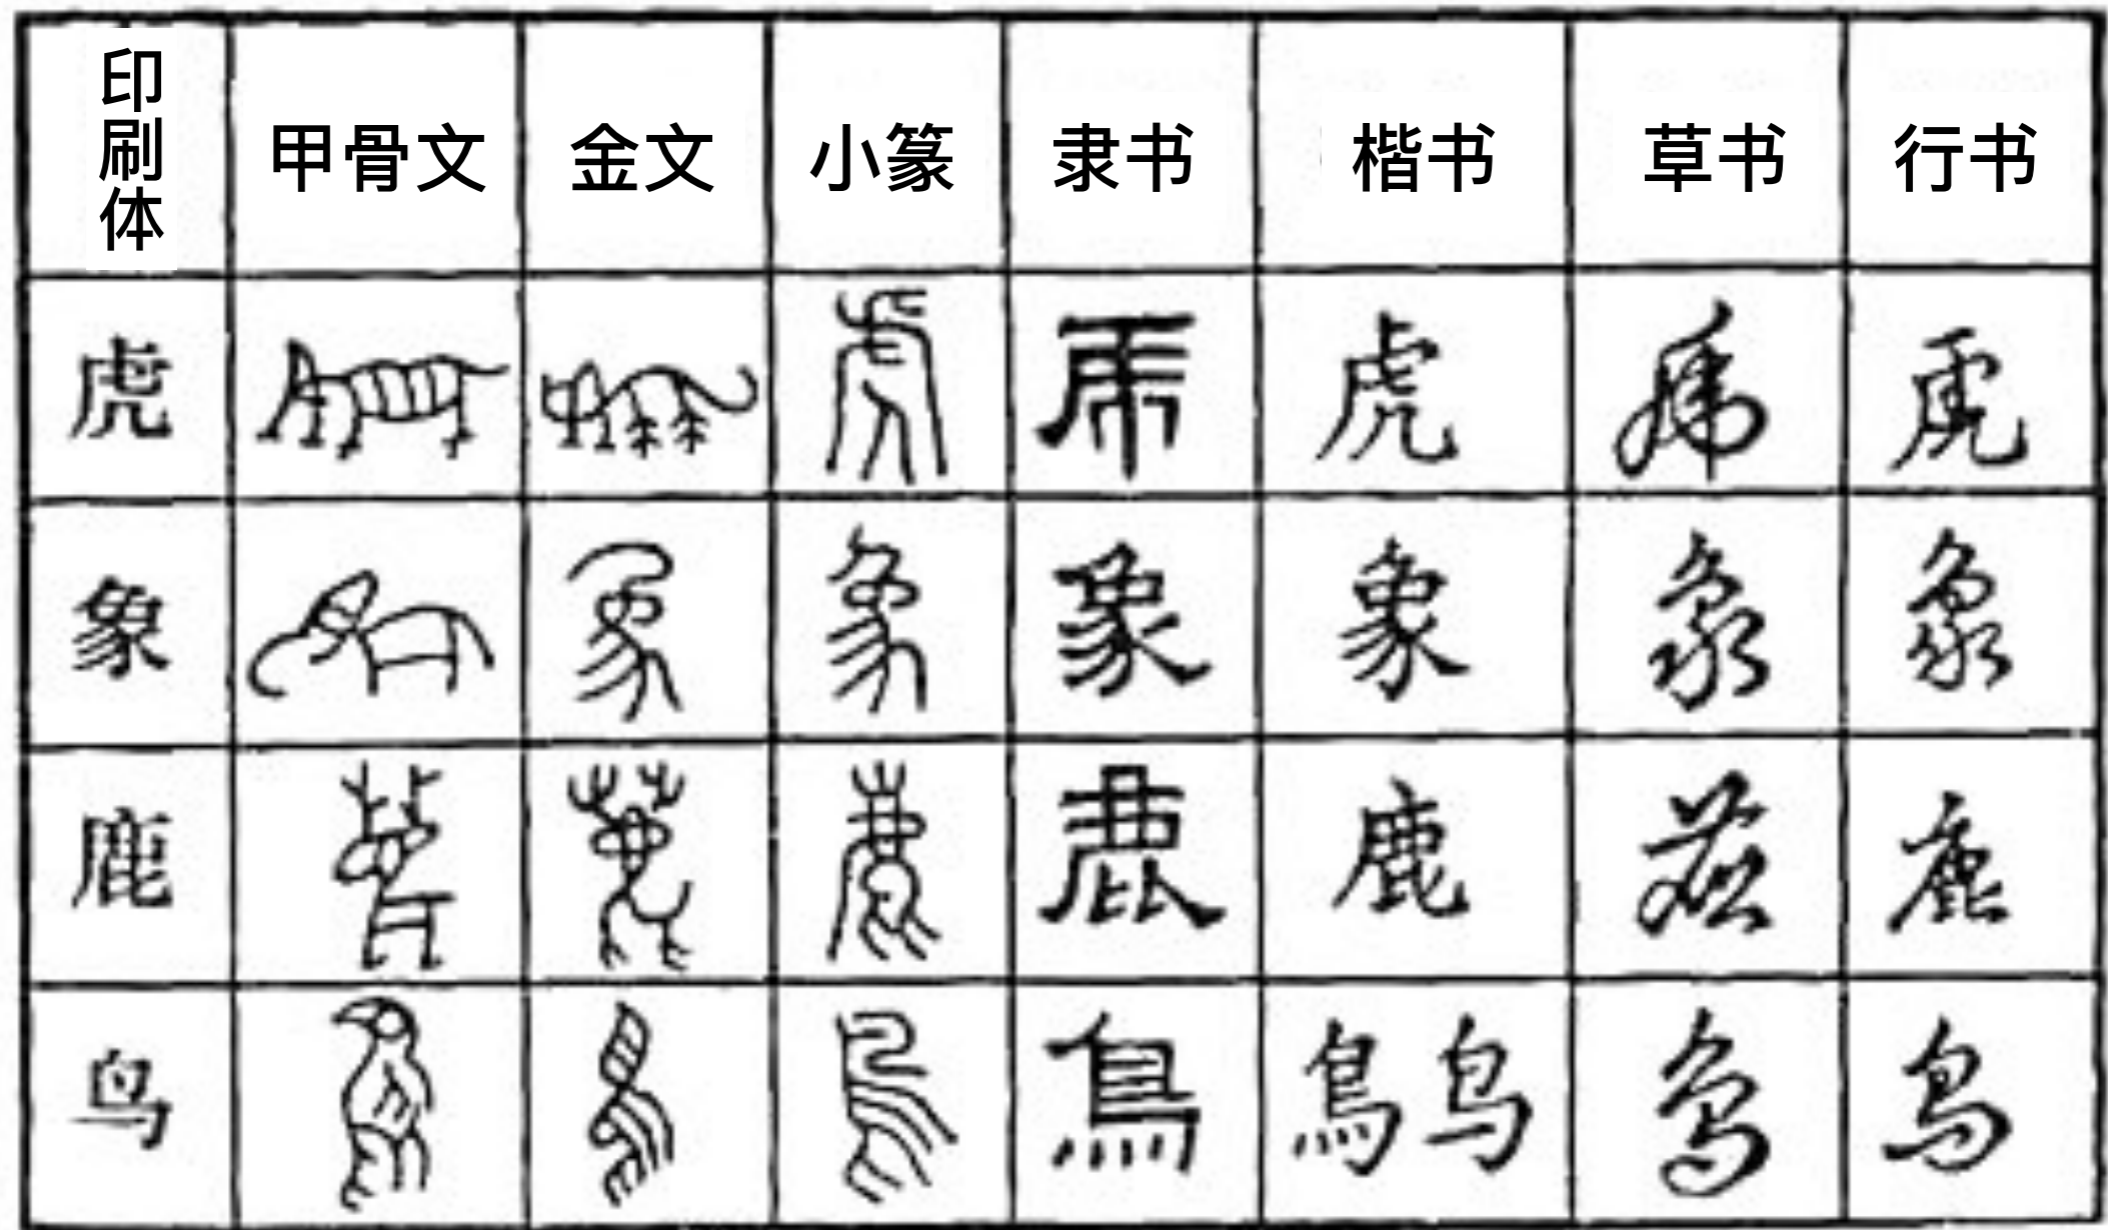 印刷体 甲骨文 金文 小篆 隶书 楷书 草书 行书
虎 虎 虎 虎 虎 虎 虎 虎
象 象 象 象 象 象 象 象
鹿 鹿 鹿 鹿 鹿 鹿 鹿 鹿
鸟 鳥 鳥 鳥 鳥 鳥 鸟 鸟 鸟